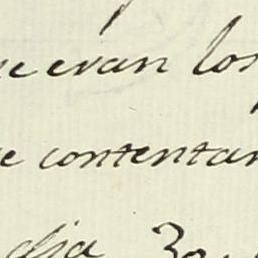 e eran los
e contentar
dia 30.